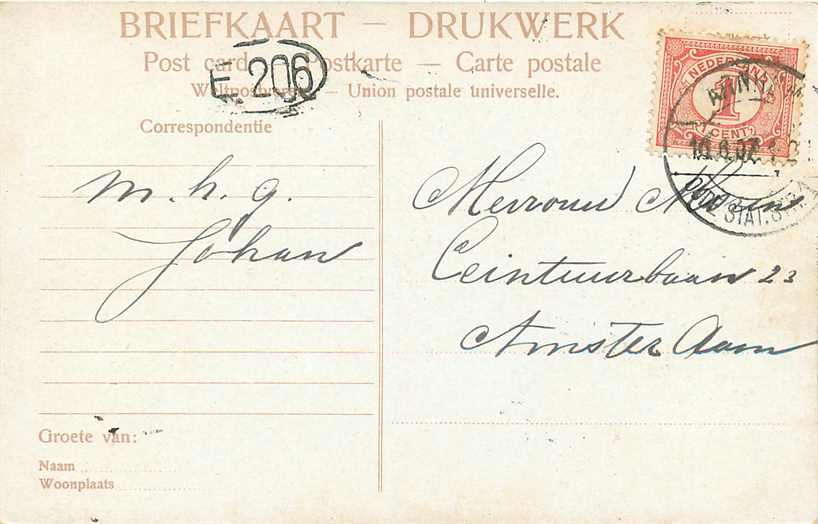 BRIEFKAART — DRUKWERK
Post card — Postkarte — Carte postale
Weltpostverein — Union postale universelle.
E. 206
NEDERLAND
1
CENT
10.6.07
Correspondentie
m. h. g.
Johan
Mevrouw
Ceintuurbaan 23
Amsterdam
Groete van:
Naam
Woonplaats